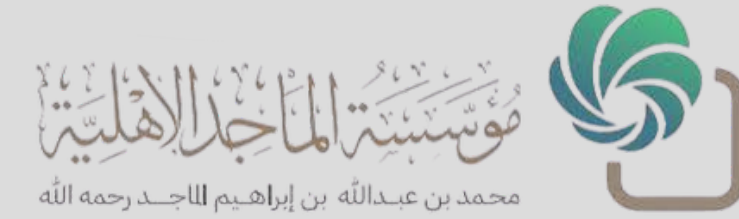 مؤسسة الماجد الأهلية
محمد بن عبدالله بن إبراهيم الماجد رحمه الله